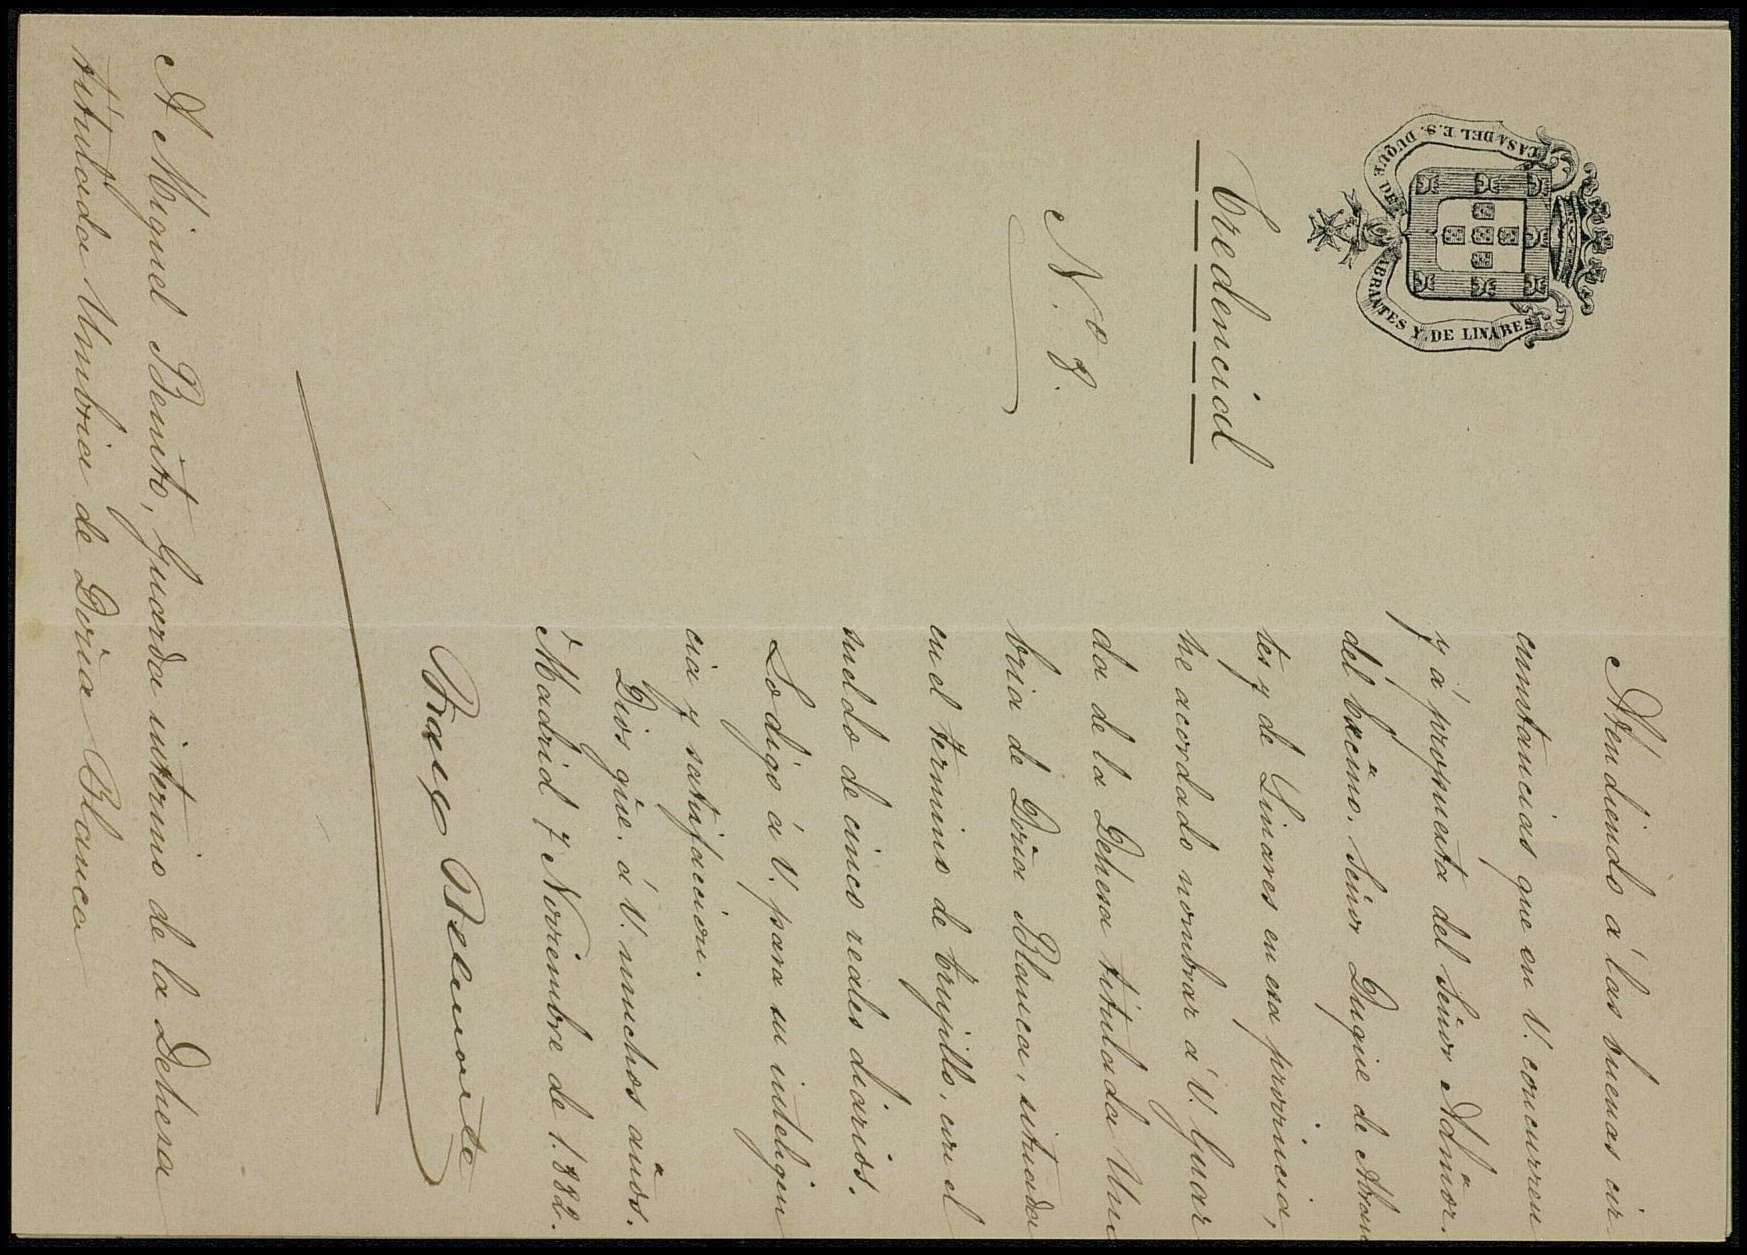 CASA DEL E. S. DUQUE DE ABRANTES Y DE LINARES
Credencial
N.º 8.
Atendiendo á las buenas cir
cunstancias que en V. concurren
y á propuesta del Señor Admor.
del Excmo. Señor Duque de Abran
tes y de Linares en esa provincia,
he acordado nombrar á V. Guar
da de la Dehesa titulada Um
bria de Doña Blanca, situada
en el termino de Trujillo, con el
sueldo de cinco reales diarios.
Lo digo á V. para su inteligen
cia y satisfaccion.
Dios gue. á V. muchos años.
Madrid 7 Noviembre de 1.882.
Franco Belmonte
A Miguel Benito, Guarda interino de la Dehesa
titulada Umbria de Doña Blanca